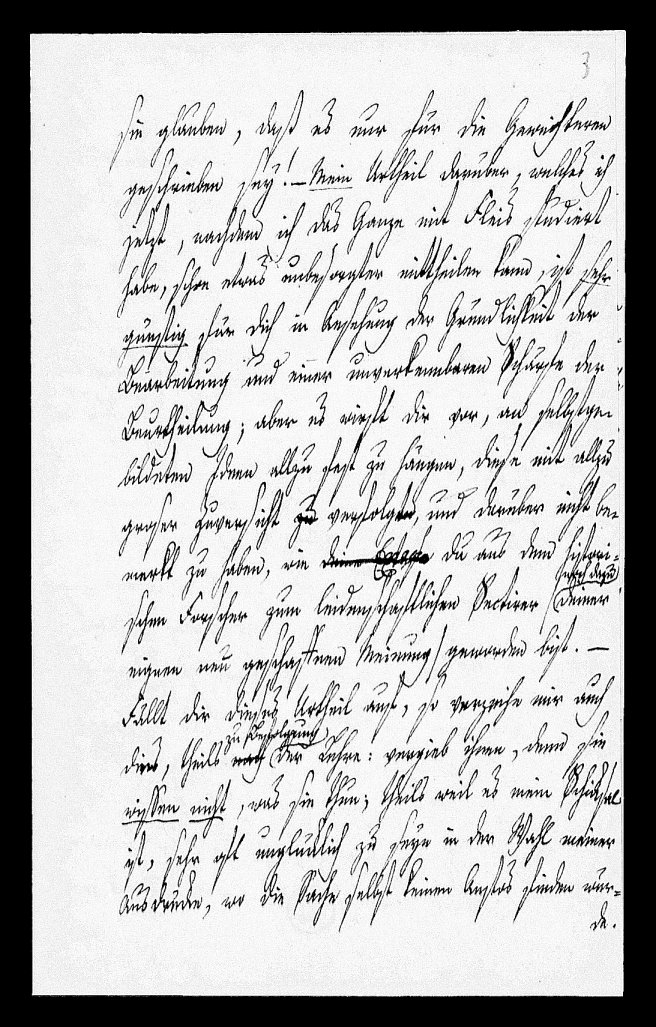 3
sie glauben, daß es nur für die Geweihteren
geschrieben sey! – Mein Urtheil darüber, welches ich
jetzt, nachdem ich das Ganze mit Fleis studiert
habe, schon etwas unbesorgter mittheilen kann, ist sehr
günstig für dich in Ansehung der Gründlichkeit der
Bearbeitung und einer unverkennbaren Schärfe der
Beurtheilung; aber es wirft dir vor, an selbstge-
bildeten Ideen allzu fest zu hängen, diese mit allzu
groser Zuversicht zu verfolgen, und darüber nicht be-
merkt zu haben, wie deine du aus dem histori-
schen Forscher zum leidenschaftlichen Sectirer (noch dazu deiner
eignen neu geschaffenen Meinung) geworden bist. –
Fällt dir dieses Urtheil auf, so verzeihe mir auch
dies, theils nach zu Befolgung der Lehre: vergieb ihnen, denn sie
wissen nicht, was sie thun; theils weil es mein Schicksal
ist, sehr oft unglücklich zu seyn in der Wahl meiner
Ausdrücke, wo die Sache selbst keinen Anstos finden wür-
de.